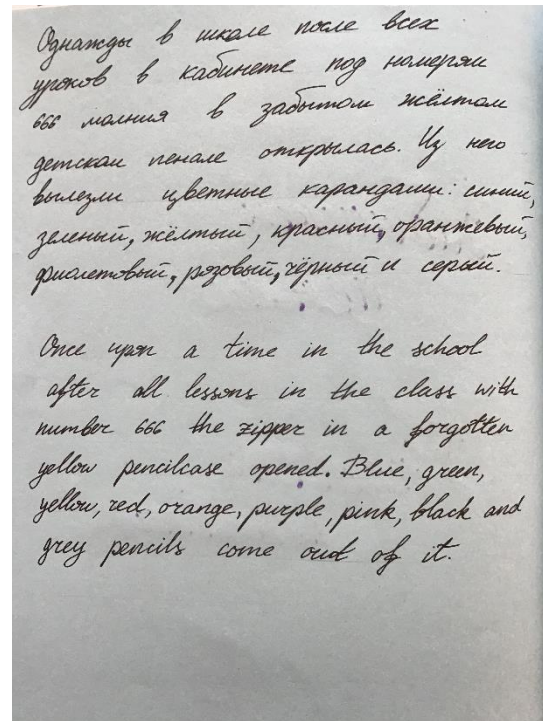 Однажды в школе после всех
уроков в кабинете под номером
666 молния в забытом жёлтом
детском пенале открылась. Из него
вылезли цветные карандаши: синий,
зеленый, жёлтый, красный, оранжевый,
фиолетовый, розовый, чёрный и серый.
Once upon a time in the school
after all lessons in the class with
number 666 the zipper in a forgotten
yellow pencilcase opened. Blue, green,
yellow, red, orange, purple, pink, black and
grey pencils come out of it.